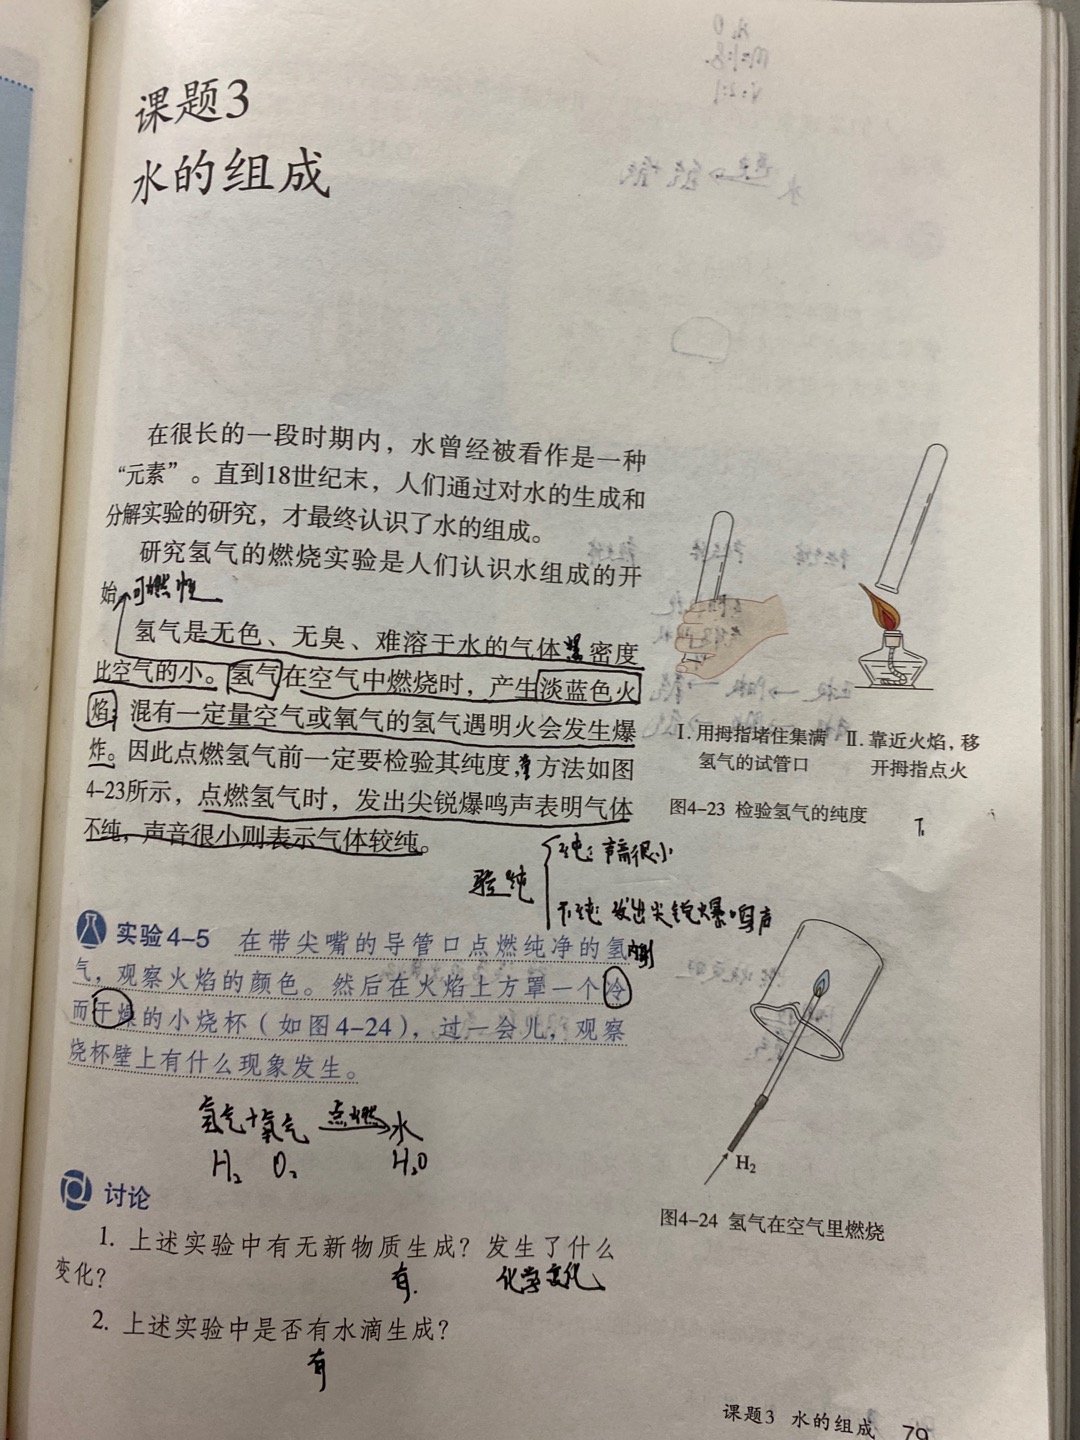 课题3
水的组成
在很长的一段时期内，水曾经被看作是一种
“元素”。直到18世纪末，人们通过对水的生成和
分解实验的研究，才最终认识了水的组成。
研究氢气的燃烧实验是人们认识水组成的开
始。
可燃性
氢气是无色、无臭、难溶于水的气体，密度
比空气的小。氢气在空气中燃烧时，产生淡蓝色火
焰；混有一定量空气或氧气的氢气遇明火会发生爆
炸。因此点燃氢气前一定要检验其纯度，方法如图
4-23所示，点燃氢气时，发出尖锐爆鸣声表明气体
不纯，声音很小则表示气体较纯。
验纯
纯：声音很小
不纯：发出尖锐爆鸣声
Ⅰ. 用拇指堵住集满
氢气的试管口
Ⅱ. 靠近火焰，移
开拇指点火
图4-23 检验氢气的纯度
实验4-5 在带尖嘴的导管口点燃纯净的氢
气，观察火焰的颜色。然后在火焰上方罩一个冷
而干燥的小烧杯（如图4-24），过一会儿，观察
烧杯壁上有什么现象发生。
内侧
氢气+氧气 点燃 水
H₂ O₂ H₂O
H₂
图4-24 氢气在空气里燃烧
讨论
1. 上述实验中有无新物质生成？发生了什么
变化？
有. 化学变化
2. 上述实验中是否有水滴生成？
有
课题3 水的组成 79